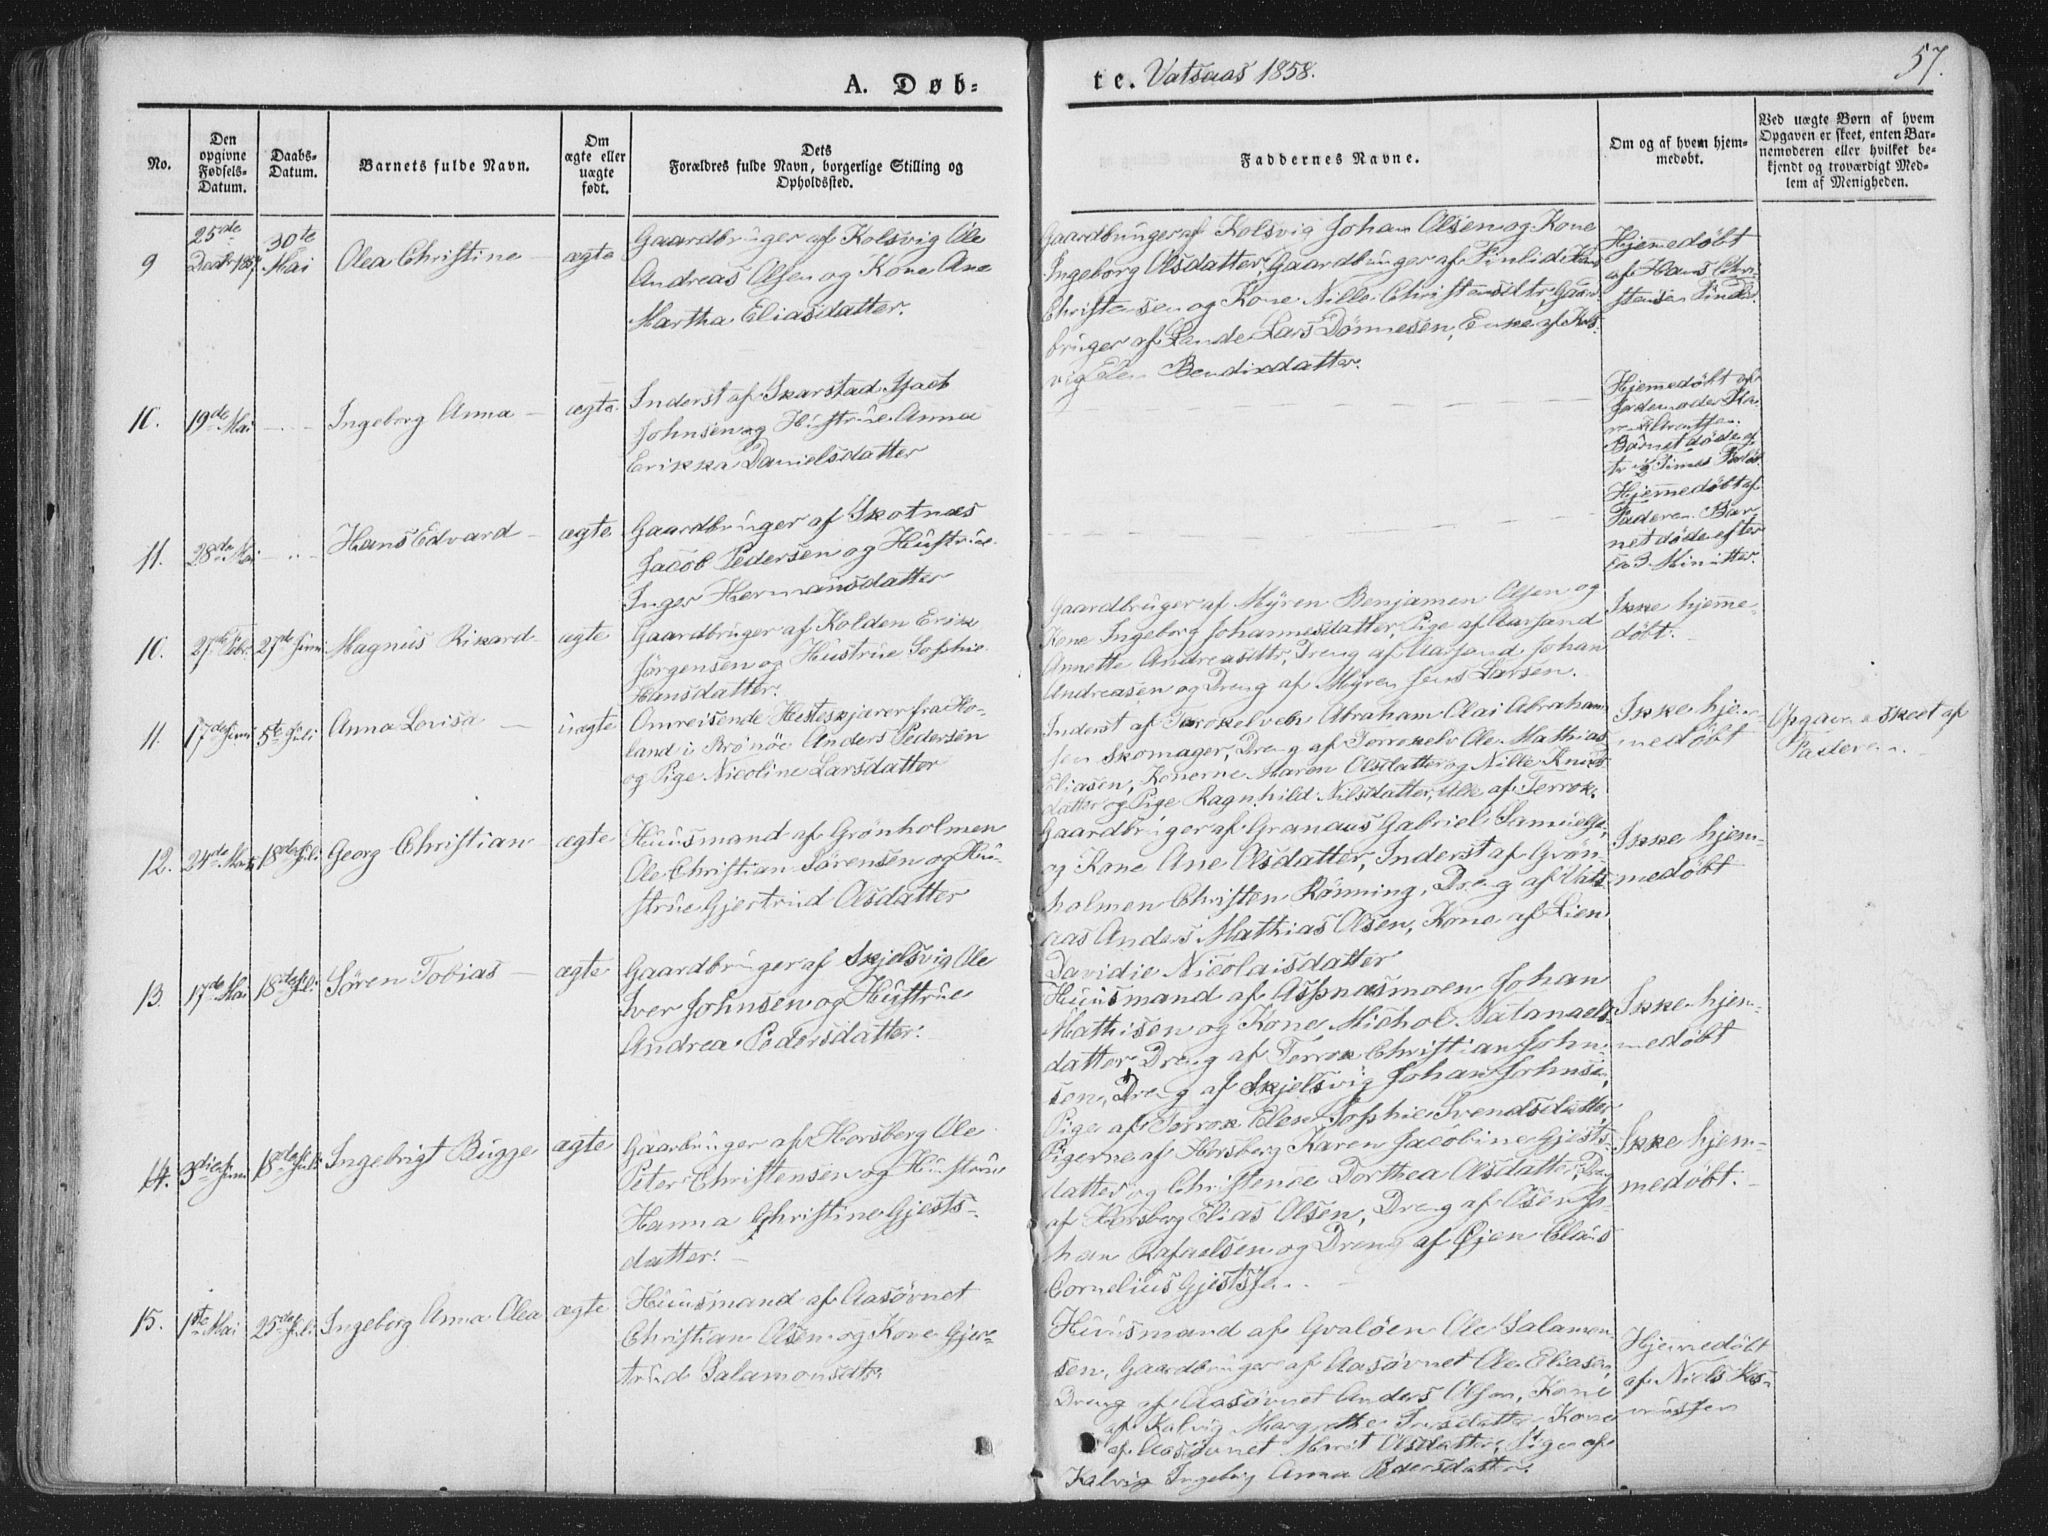 57.
A. Døb-
te. Vatsaas 1858.
No.
Den opgivne Fødsels-Datum.
Daabs-Datum.
Barnets fulde Navn.
Om ægte eller uægte født.
Dets
Forældres fulde Navn, borgerlige Stilling og
Opholdssted.
Faddernes Navne.
Om og af hvem hjem-
medøbt.
Ved uægte Børn af hvem
Opgaven er skeet, enten Bar-
nemoderen eller hvilket be-
kjendt og troværdigt Med-
lem af Menigheden.
9
25de
30te
Mai
Olea Christine
ægte
Gaardbruger af Kolsvig Ole
Andreas Olsen og Kone Ane
Martha Eliasdatter.
Gaardbruger af Kolsvig Johan Olsen og Kone
Ingeborg Olsdatter, Gaardbruger af Finlid
Christensen og Kone Nille
bruger af Lande Lars Dønnesen, Enke af
vig Bendixdatter.
Hjemmedøbt
af Hans Chri-
stensen
10.
19de Mai
Ingeborg Anna
ægte
Inderst af Skarstad Jacob
Johnsen og Hustrue Anna
Erikka Danielsdatter
Hjemmedøbt af
Jordemoder
Barnet døde ef-
11.
28de Mai
Hans Edvard
ægte
Gaardbruger af Skotnæs
Jacob Pedersen og Hustrue
Inger Hermansdatter
Hjemmedøbt af
Faderen. Bar-
net døde efter
3 Minutter.
10.
27de Febr.
27de Juni
Magnus Rikard
ægte
Gaardbruger af Kolden Erik
Jørgensen og Hustrue Sophie
Hansdatter.
Gaardbruger af Myren Benjamen Olsen og
Kone Ingeborg Johannesdatter, Pige af Aarsand
Annette Andreasdtr, Dreng af Aarsand Johan
Andreasen og Dreng af Myren Jens Larsen.
Ikke hjemme-
døbt.
11.
17de Juni
5te Juli
Anna Lovisa
uægte
Omreisende Hesteskjærer fra Ho-
land i Brønøe Anders Pedersen
og Pige Nicoline Larsdatter
Inderst af Abraham Olai Abraham-
sen Skomager, Dreng af Terrokelv Ole Mathias
Eliasen, Konerne Maren Olsdatter og Nille
datter og Pige Ragnhild Nilsdatter, Alle af Terrok.
Ikke hjem-
medøbt
Opgaven skeet af
Faderen.
12.
24de
18de Juli
Georg Christian
ægte
Huusmand af Grønholmen
Ole Christian Sørensen og Hu-
strue Gjertrud Olsdatter
Gaardbruger af Granaas Gabriel
og Kone Ane Olsdatter, Inderst af Grøn-
holmen Christen Rønning, Dreng af Vats-
aas Anders Mathias Olsen, Kone af Lien
Davidie Nicolaisdatter
Ikke hjem-
medøbt
13.
17de Mai
18de Juli
Søren Tobias
ægte
Gaardbruger af Skjelsvig Ole
Iver Johnsen og Hustrue
Andrea Pedersdatter.
Huusmand af Aspnasmoen Johan
Mathisen og Kone Michol Natanaels-
datter, Dreng af Terrok Christian John-
sen, Dreng af Skjelsvig Johan Johnsen,
Pige af Terrok Elen Sophie Svendsdatter
Ikke hjem-
medøbt
14.
3die Juni
18de Juli
Ingebrigt Bugge
ægte
Gaardbruger af Horsberg Ole
Peter Christensen og Hustrue
Hanna Christine Gjests-
datter.
Pigerne af Horsberg Karen Jacobine Gjests-
datter og Christence Dorthea Olsdatter, Dreng
af Horsberg Elias Olsen, Dreng af Osen Jo-
han Rafaelsen og Dreng af Øjen Claus
Cornelius Gjestsen.
Ikke hjem-
medøbt.
15.
1ste Mai
25de Juli
Ingeborg Anna Olea
ægte
Huusmand af Aasøvnet
Christian Olsen og Kone Gjer-
trud Salamonsdtr
Huusmand af Gvaløen Ole Salamon-
sen, Gaardbruger af Aasøvnet Ole Eliasen,
Dreng af Aasøvnet Anders Olsen, Kone
af Kalvig Margrethe Kone
af Aasøvnet Marit Olsdatter, Pige af
Kalvig Ingeborg Anna Pedersdatter.
Hjemmedøbt
af Niels Ras-
mussen